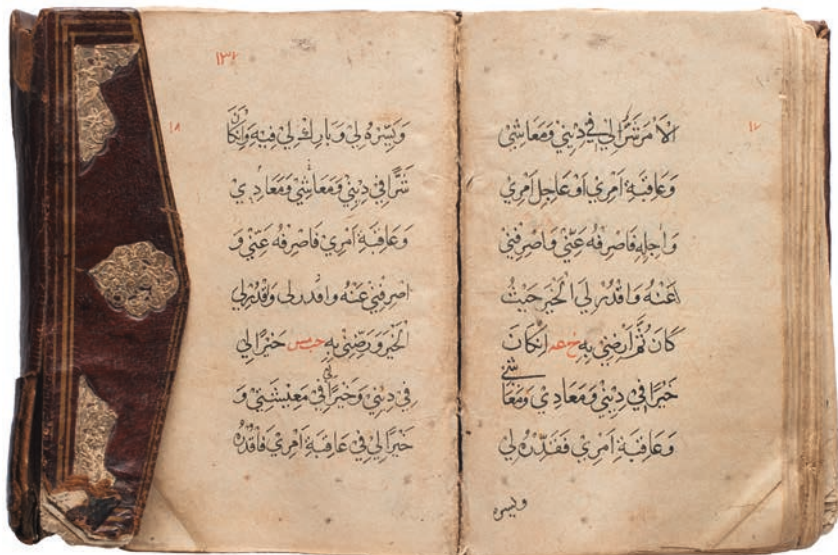 ١٧
اَلْاَمْرَ شَرًّا لِي فِي دِيْنِيْ وَمَعَاشِيْ
وَعَاقِبَةِ اَمْرِيْ اَوْ عَاجِلِ اَمْرِيْ
وَاٰجِلِهِ فَاصْرِفْهُ عَنِّيْ وَاصْرِفْنِيْ
عَنْهُ وَاقْدُرْ لِي الْخَيْرَ حَيْثُ
كَانَ ثُمَّ اَرْضِنِيْ بِهِ اِنْ كَانَ
خَيْرًا فِيْ دِيْنِيْ وَمَعَادِيْ وَمَعَاشِيْ
وَعَاقِبَةِ اَمْرِيْ فَقَدِّرْهُ لِيْ
ويسره
١٨
وَيَسِّرْهُ لِيْ وَبَارِكْ لِيْ فِيْهِ وَاِنْ كَانَ
شَرًّا فِيْ دِيْنِيْ وَمَعَاشِيْ وَمَعَادِيْ
وَعَاقِبَةِ اَمْرِيْ فَاصْرِفْهُ عَنِّيْ وَ
اصْرِفْنِيْ عَنْهُ وَاقْدُرْ لِي وَاقْدُرْ لِي
الْخَيْرَ وَرَضِّنِيْ بِهِ خَيْرًا لِي
فِيْ دِيْنِيْ وَخَيْرًا لِي فِيْ مَعِيْشَتِيْ وَ
خَيْرًا لِيْ فِيْ عَاقِبَةِ اَمْرِيْ فَاقْدُرْهُ